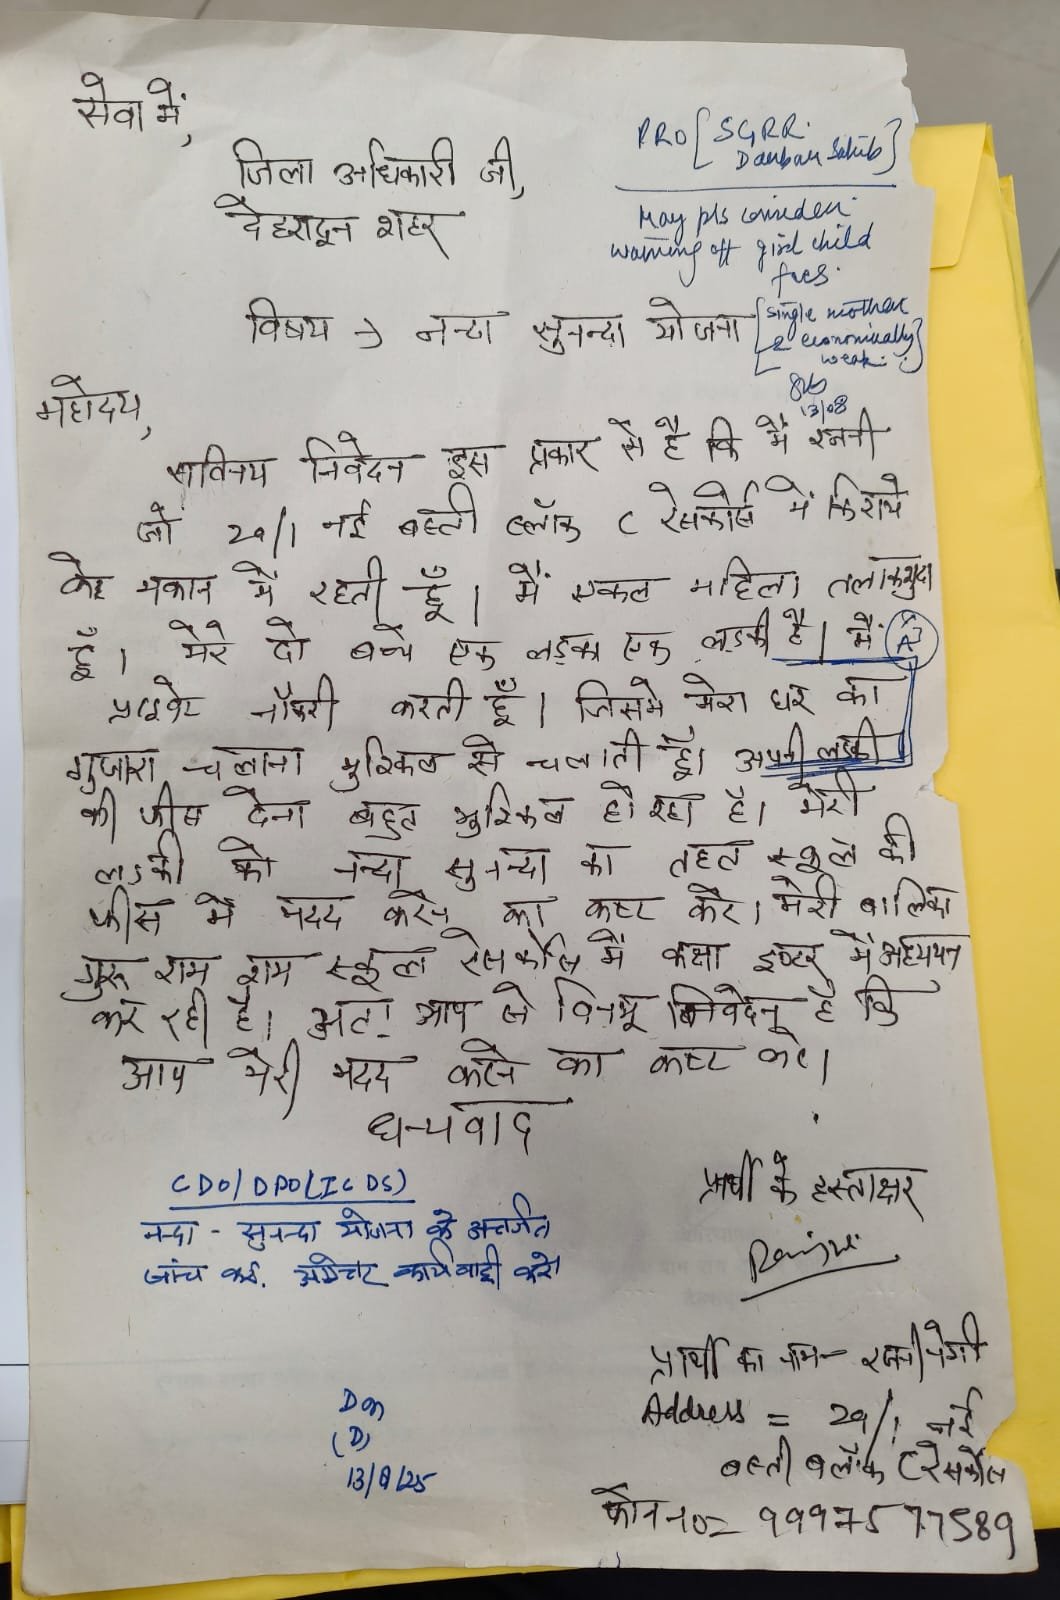 सेवा में,
जिला अधिकारी जी,
देहरादून शहर
PRO [SGRR
Darbar Sahib]
May pls consider
waiving off girl child
fees.
[single mother
& economically
weak.]
13/08
विषय → नन्दा सुनन्दा योजना
महोदय,
सविनय निवेदन इस प्रकार से है कि मैं रजनी
जो 29/1 नई बस्ती ब्लॉक C रेसकोर्स में किराये
के मकान में रहती हूँ। मैं एकल महिला तलाकशुदा
हूँ। मेरे दो बच्चे एक लड़का एक लड़की है। मैं
A
प्राइवेट नौकरी करती हूँ। जिसमे मेरा घर का
गुजारा चलाना मुश्किल से चलाती हूँ। अपनी लडकी
की फीस देना बहुत मुश्किल हो रहा है। मेरी
लडकी को नन्दा सुनन्दा का तहत स्कूल की
फीस में मदद करने का कष्ट करे। मेरी बालिका
गुरू राम राम स्कूल रेसकोर्स में कक्षा इण्टर में अध्ययन
कर रही है। अतः आप से विनम्र निवेदन है कि
आप मेरी मदद करने का कष्ट करे।
धन्यवाद
प्रार्थी के हस्ताक्षर
CDO/DPO(ICDS)
नन्दा - सुनन्दा योजना के अन्तर्गत
जांच कर, अग्रेत्तर कार्यवाही करें
प्रार्थी का नाम - रजनी नेगी
Address = 29/1 नई
बस्ती ब्लॉक C रेसकोर्स
फोन no = 9997577589
Dm
(D)
13/8/25